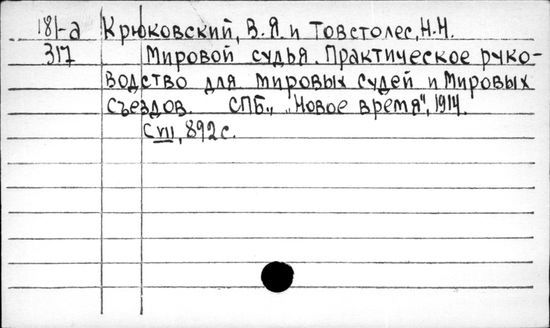 181-а Крюковский, В.Я. и Товстолес, Н.Н.
317 Мировой судья. Практическое руко-
водство для мировых судей и Мировых
съездов. СПБ., "Новое время", 1914.
С VII, 892 с.